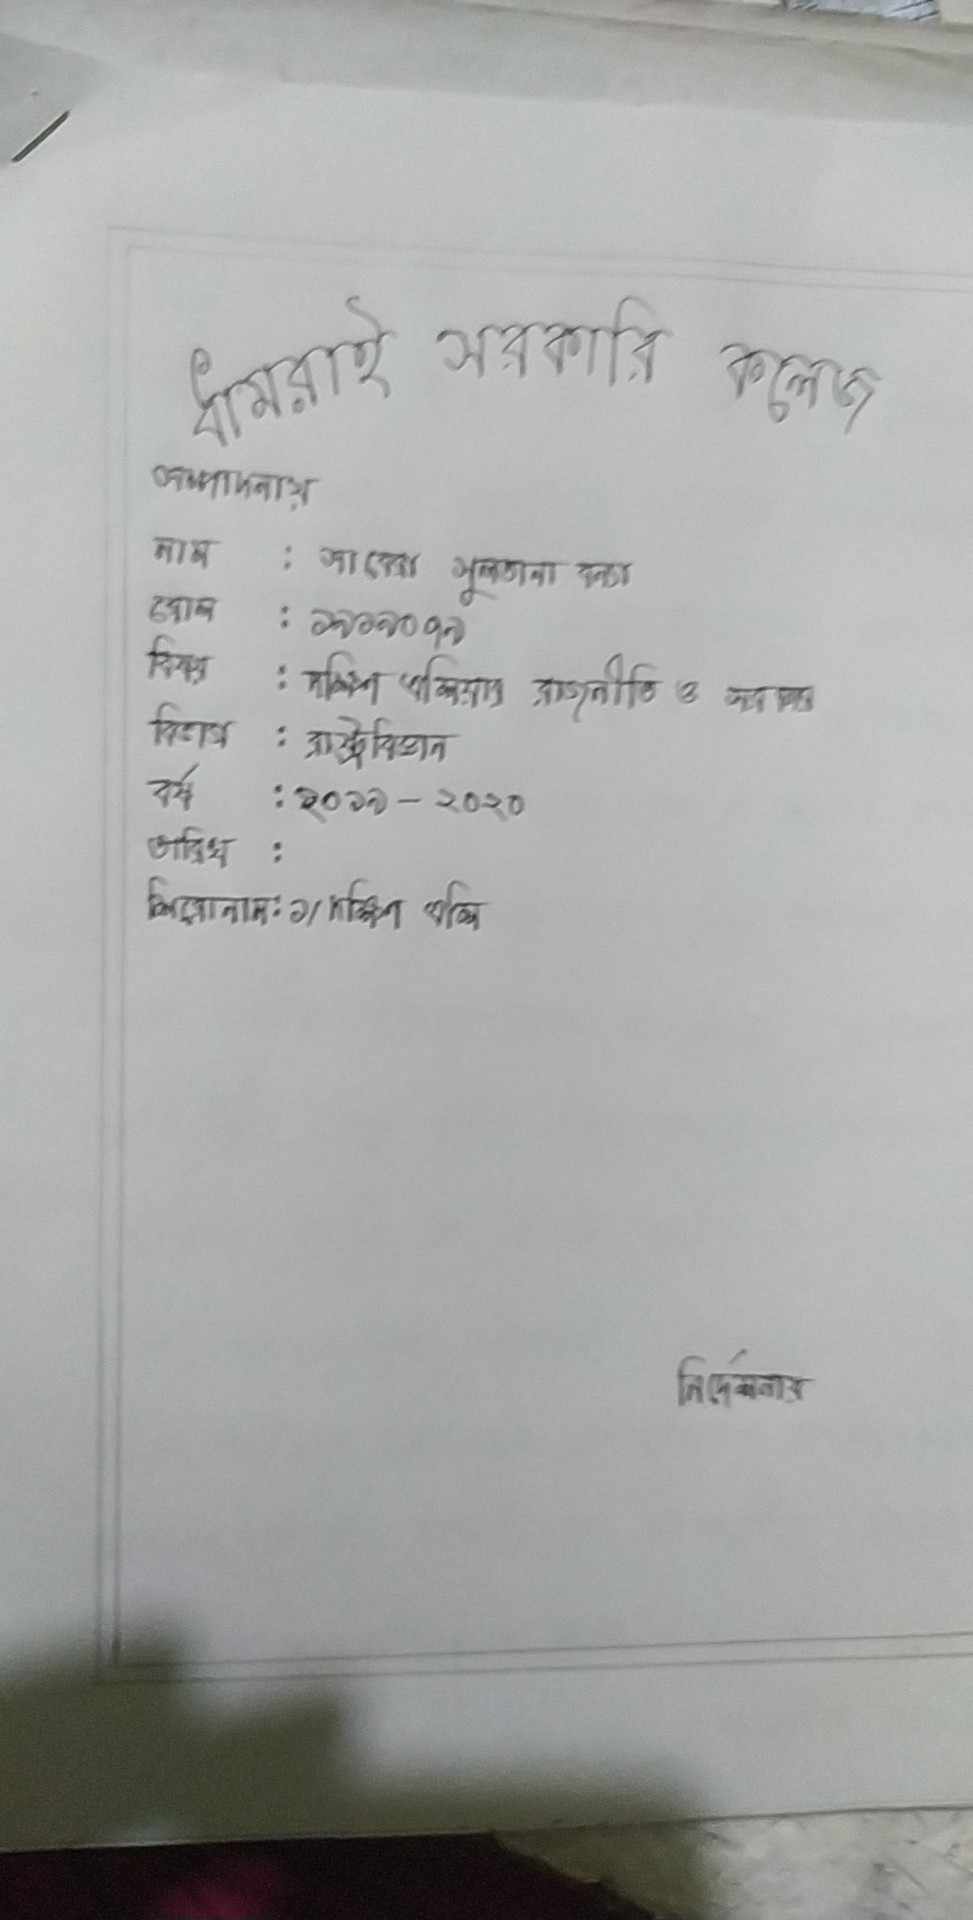 ধামরাই সরকারি কলেজ
সম্পাদনায়
নাম : সুলতানা
রোল : ১৯১৯০৭৯
বিষয় : দক্ষিণ এশিয়ার রাজনীতি ও সরকার
বিভাগ : রাষ্ট্রবিজ্ঞান
বর্ষ : ২০১৯ - ২০২০
তারিখ :
শিরোনাম: ১/ দক্ষিণ এশি
নির্দেশনায়